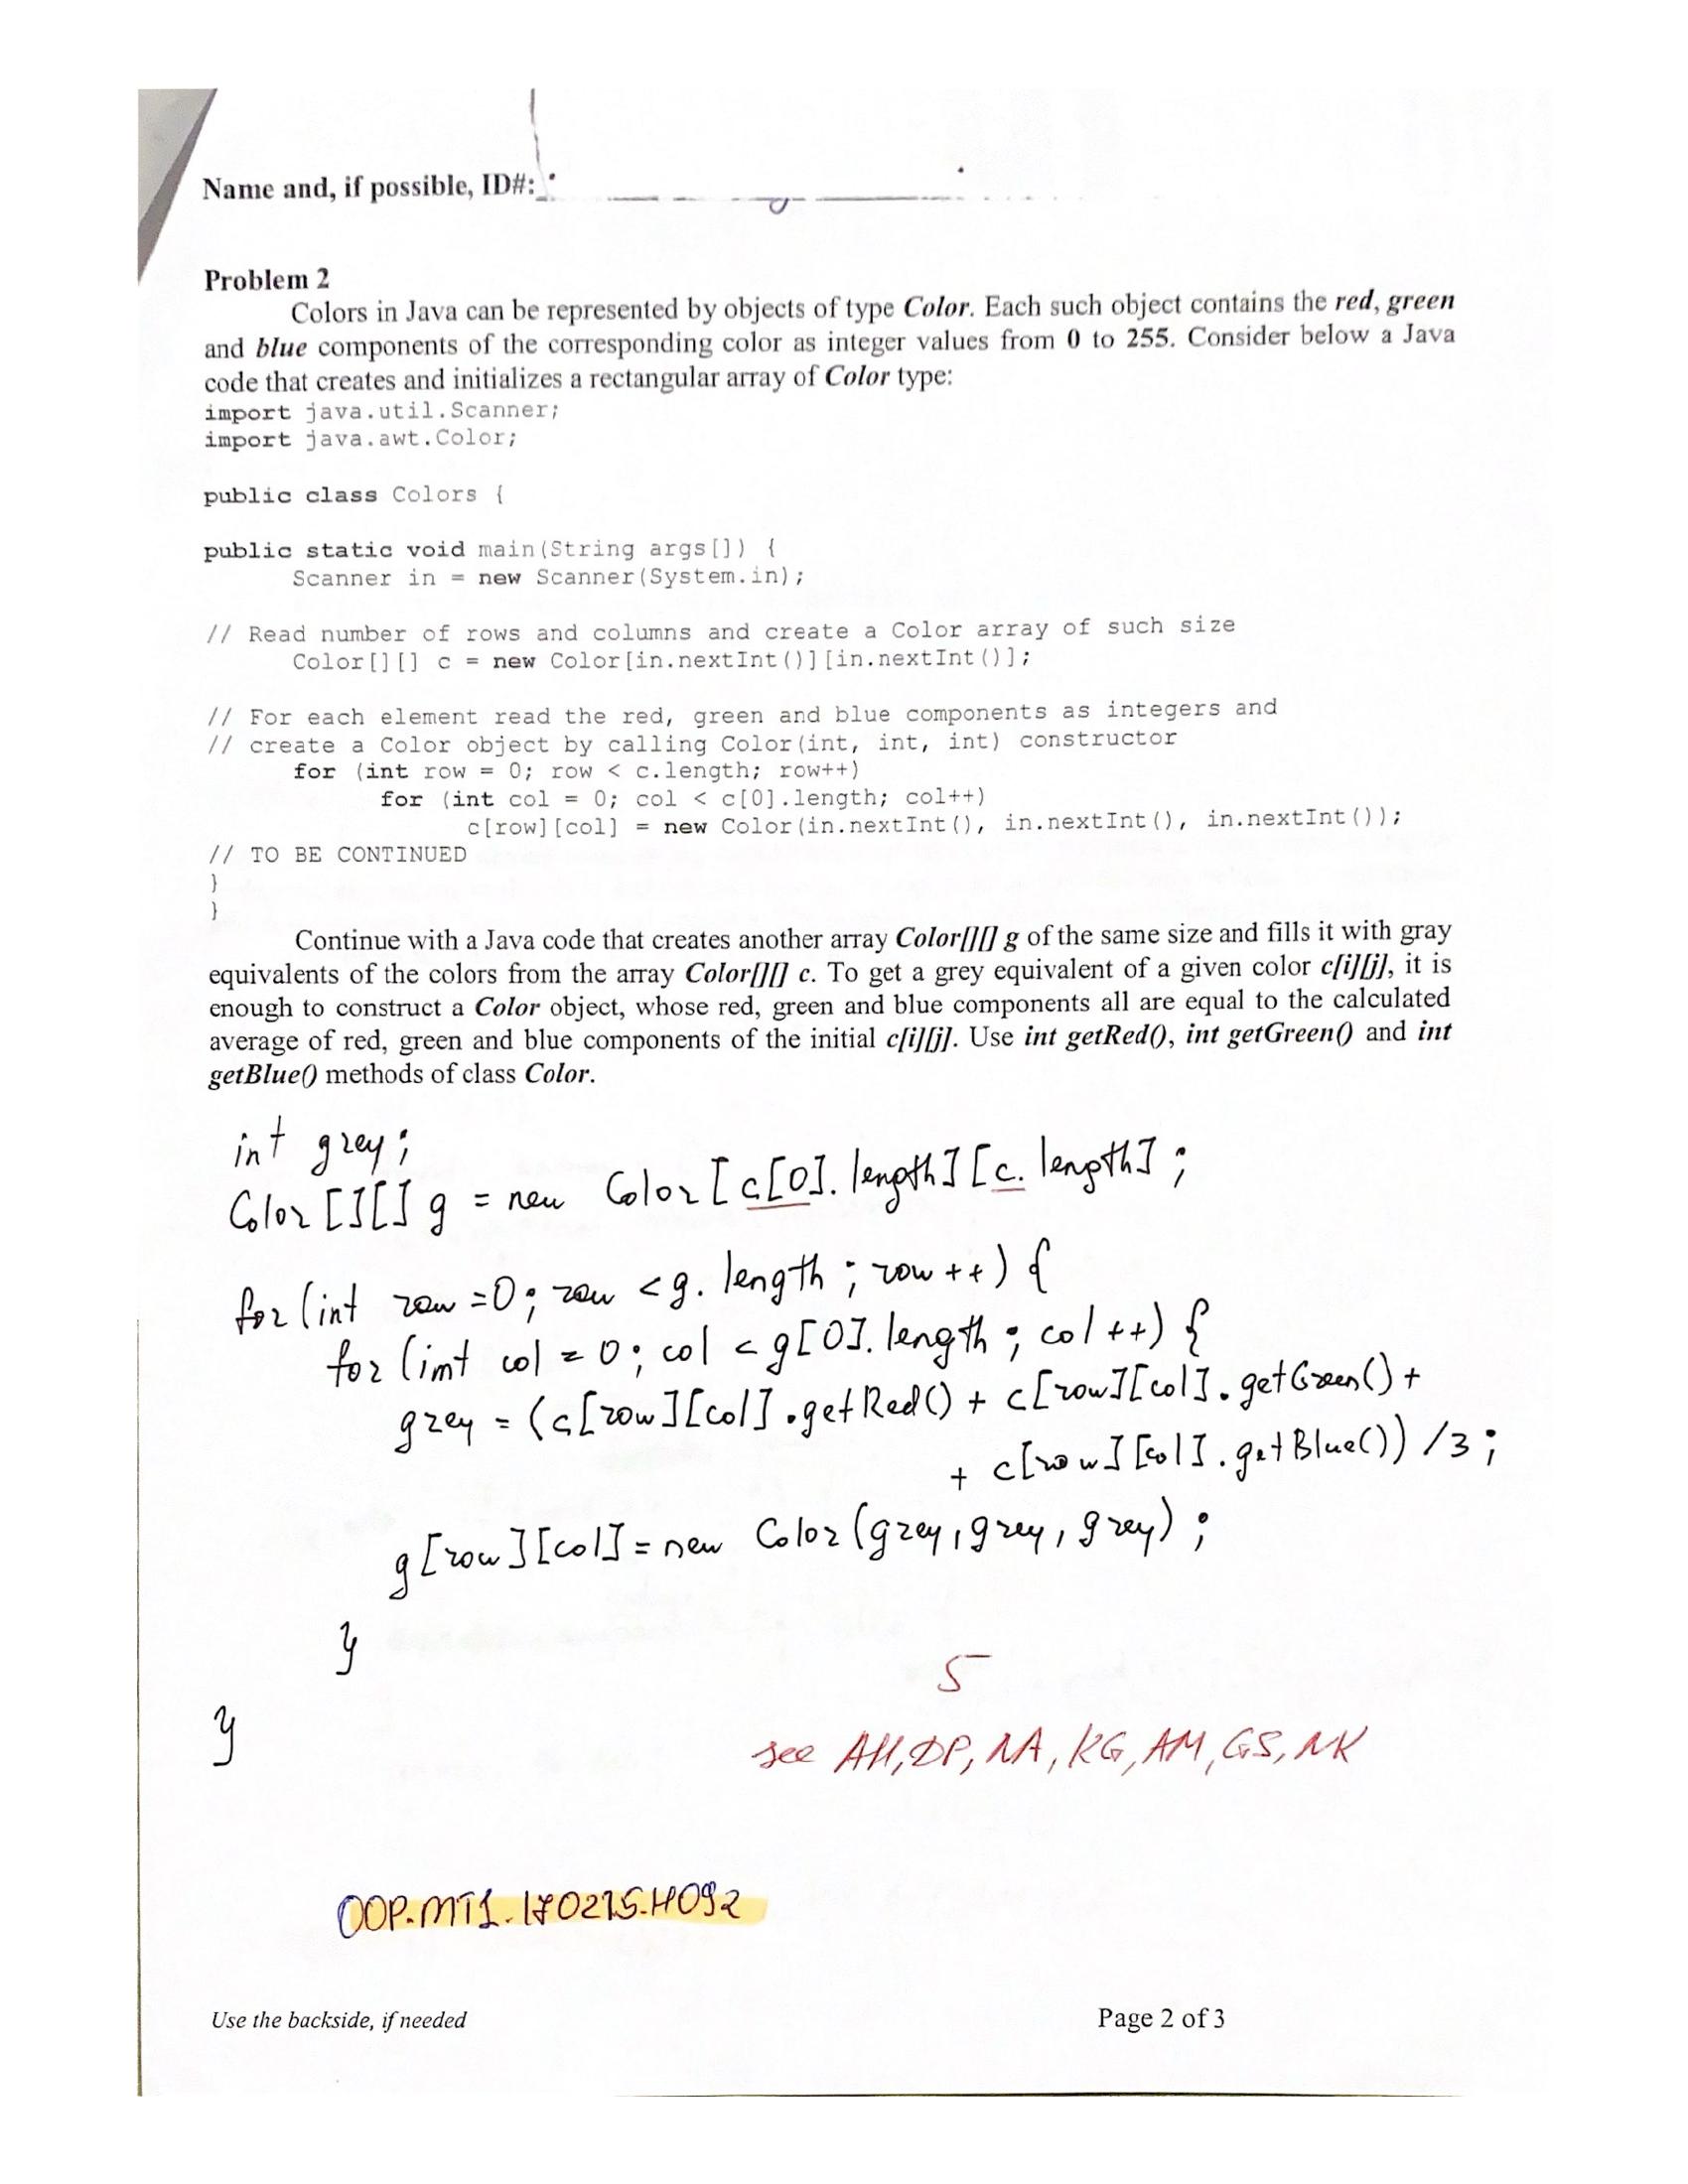 Name and, if possible, ID#:
Problem 2
Colors in Java can be represented by objects of type Color. Each such object contains the red, green
and blue components of the corresponding color as integer values from 0 to 255. Consider below a Java
code that creates and initializes a rectangular array of Color type:
import java.util.Scanner;
import java.awt.Color;
public class Colors {
public static void main(String args[]) {
Scanner in = new Scanner(System.in);
// Read number of rows and columns and create a Color array of such size
Color[][] c = new Color[in.nextInt()][in.nextInt()];
// For each element read the red, green and blue components as integers and
// create a Color object by calling Color(int, int, int) constructor
for (int row = 0; row < c.length; row++)
for (int col = 0; col < c[0].length; col++)
c[row][col] = new Color(in.nextInt(), in.nextInt(), in.nextInt());
// TO BE CONTINUED
}
}
Continue with a Java code that creates another array Color[][] g of the same size and fills it with gray
equivalents of the colors from the array Color[][] c. To get a grey equivalent of a given color c[i][j], it is
enough to construct a Color object, whose red, green and blue components all are equal to the calculated
average of red, green and blue components of the initial c[i][j]. Use int getRed(), int getGreen() and int
getBlue() methods of class Color.
int grey;
Color [][] g = new Color [c[0].length][c.length];
for (int row = 0; row < g.length; row++) {
for (int col = 0; col < g[0].length; col++) {
grey = (c[row][col].getRed() + c[row][col].getGreen() +
+ c[row][col].getBlue()) /3;
g[row][col] = new Color (grey, grey, grey);
}
5
}
see AH, DP, NA, KG, AM, GS, NK
OOP.MT1.170215.H092
Use the backside, if needed
Page 2 of 3